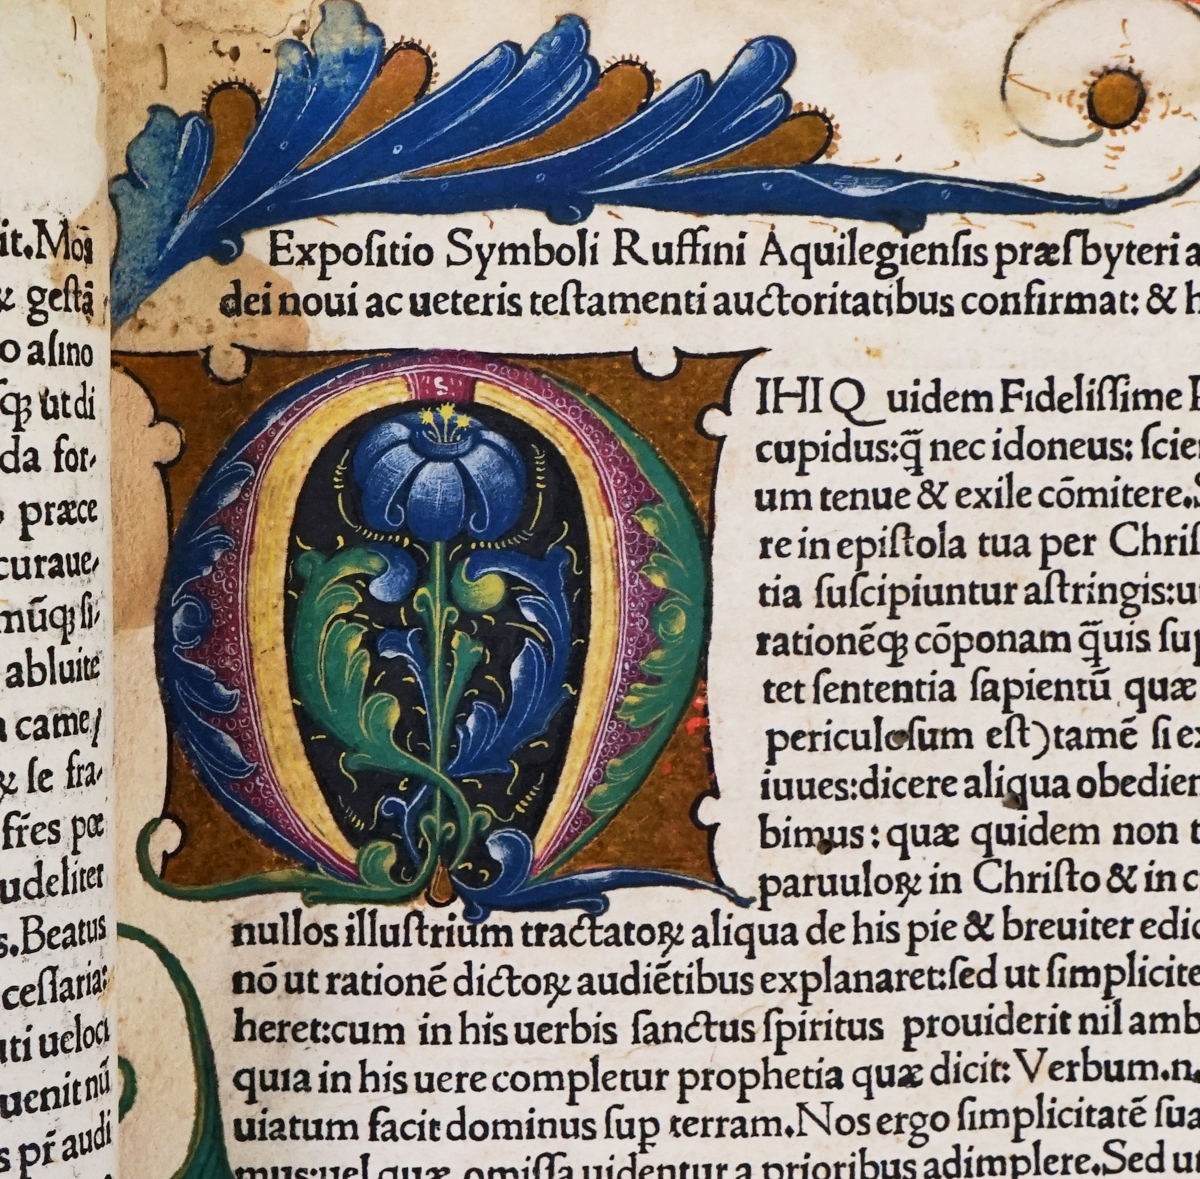 it. Moã
& geſtã
o aſino
ſq̃ ut di
da for-
præce
curaue-
mũq̃ ſi-
abluite
a came/
& ſe fra-
fr̃es pœ
udeliter
s. Beatus
ceſſaria:
uti ueloci
uenit nũ
s pr̃ audi
Expoſitio Symboli Ruffini Aquilegienſis præſbyteri a
dei noui ac ueteris teſtamenti auctoritatibus confirmat: & h
O
IHI Quidem Fideliſſime P
cupidus: q̃ nec idoneus: ſcie
um tenue & exile cõmitere.
re in epiſtola tua per Chriſ
tia ſuſcipiuntur aſtringis: ut
rationẽqꝫ cõponam q̃uis ſup
tet ſententia ſapientũ quæ
periculoſum eſt) tamẽ ſi ex
iuues: dicere aliqua obedien
bimus: quæ quidem non t
paruuloꝝ in Chriſto & in c
nullos illuſtrium tractatoꝝ aliqua de his pie & breuiter edid
nõ ut rationẽ dictoꝝ audiẽtibus explanaret: ſed ut ſimplicite
heret: cum in his uerbis ſanctus ſpiritus prouiderit nil amb
quia in his uere completur prophetia quæ dicit: Verbum. n.
uiatum facit dominus ſup terram. Nos ergo ſimplicitatẽ ſua
mus: uel quæ omiſſa uidentur a prioribus adimplere. Sed ut